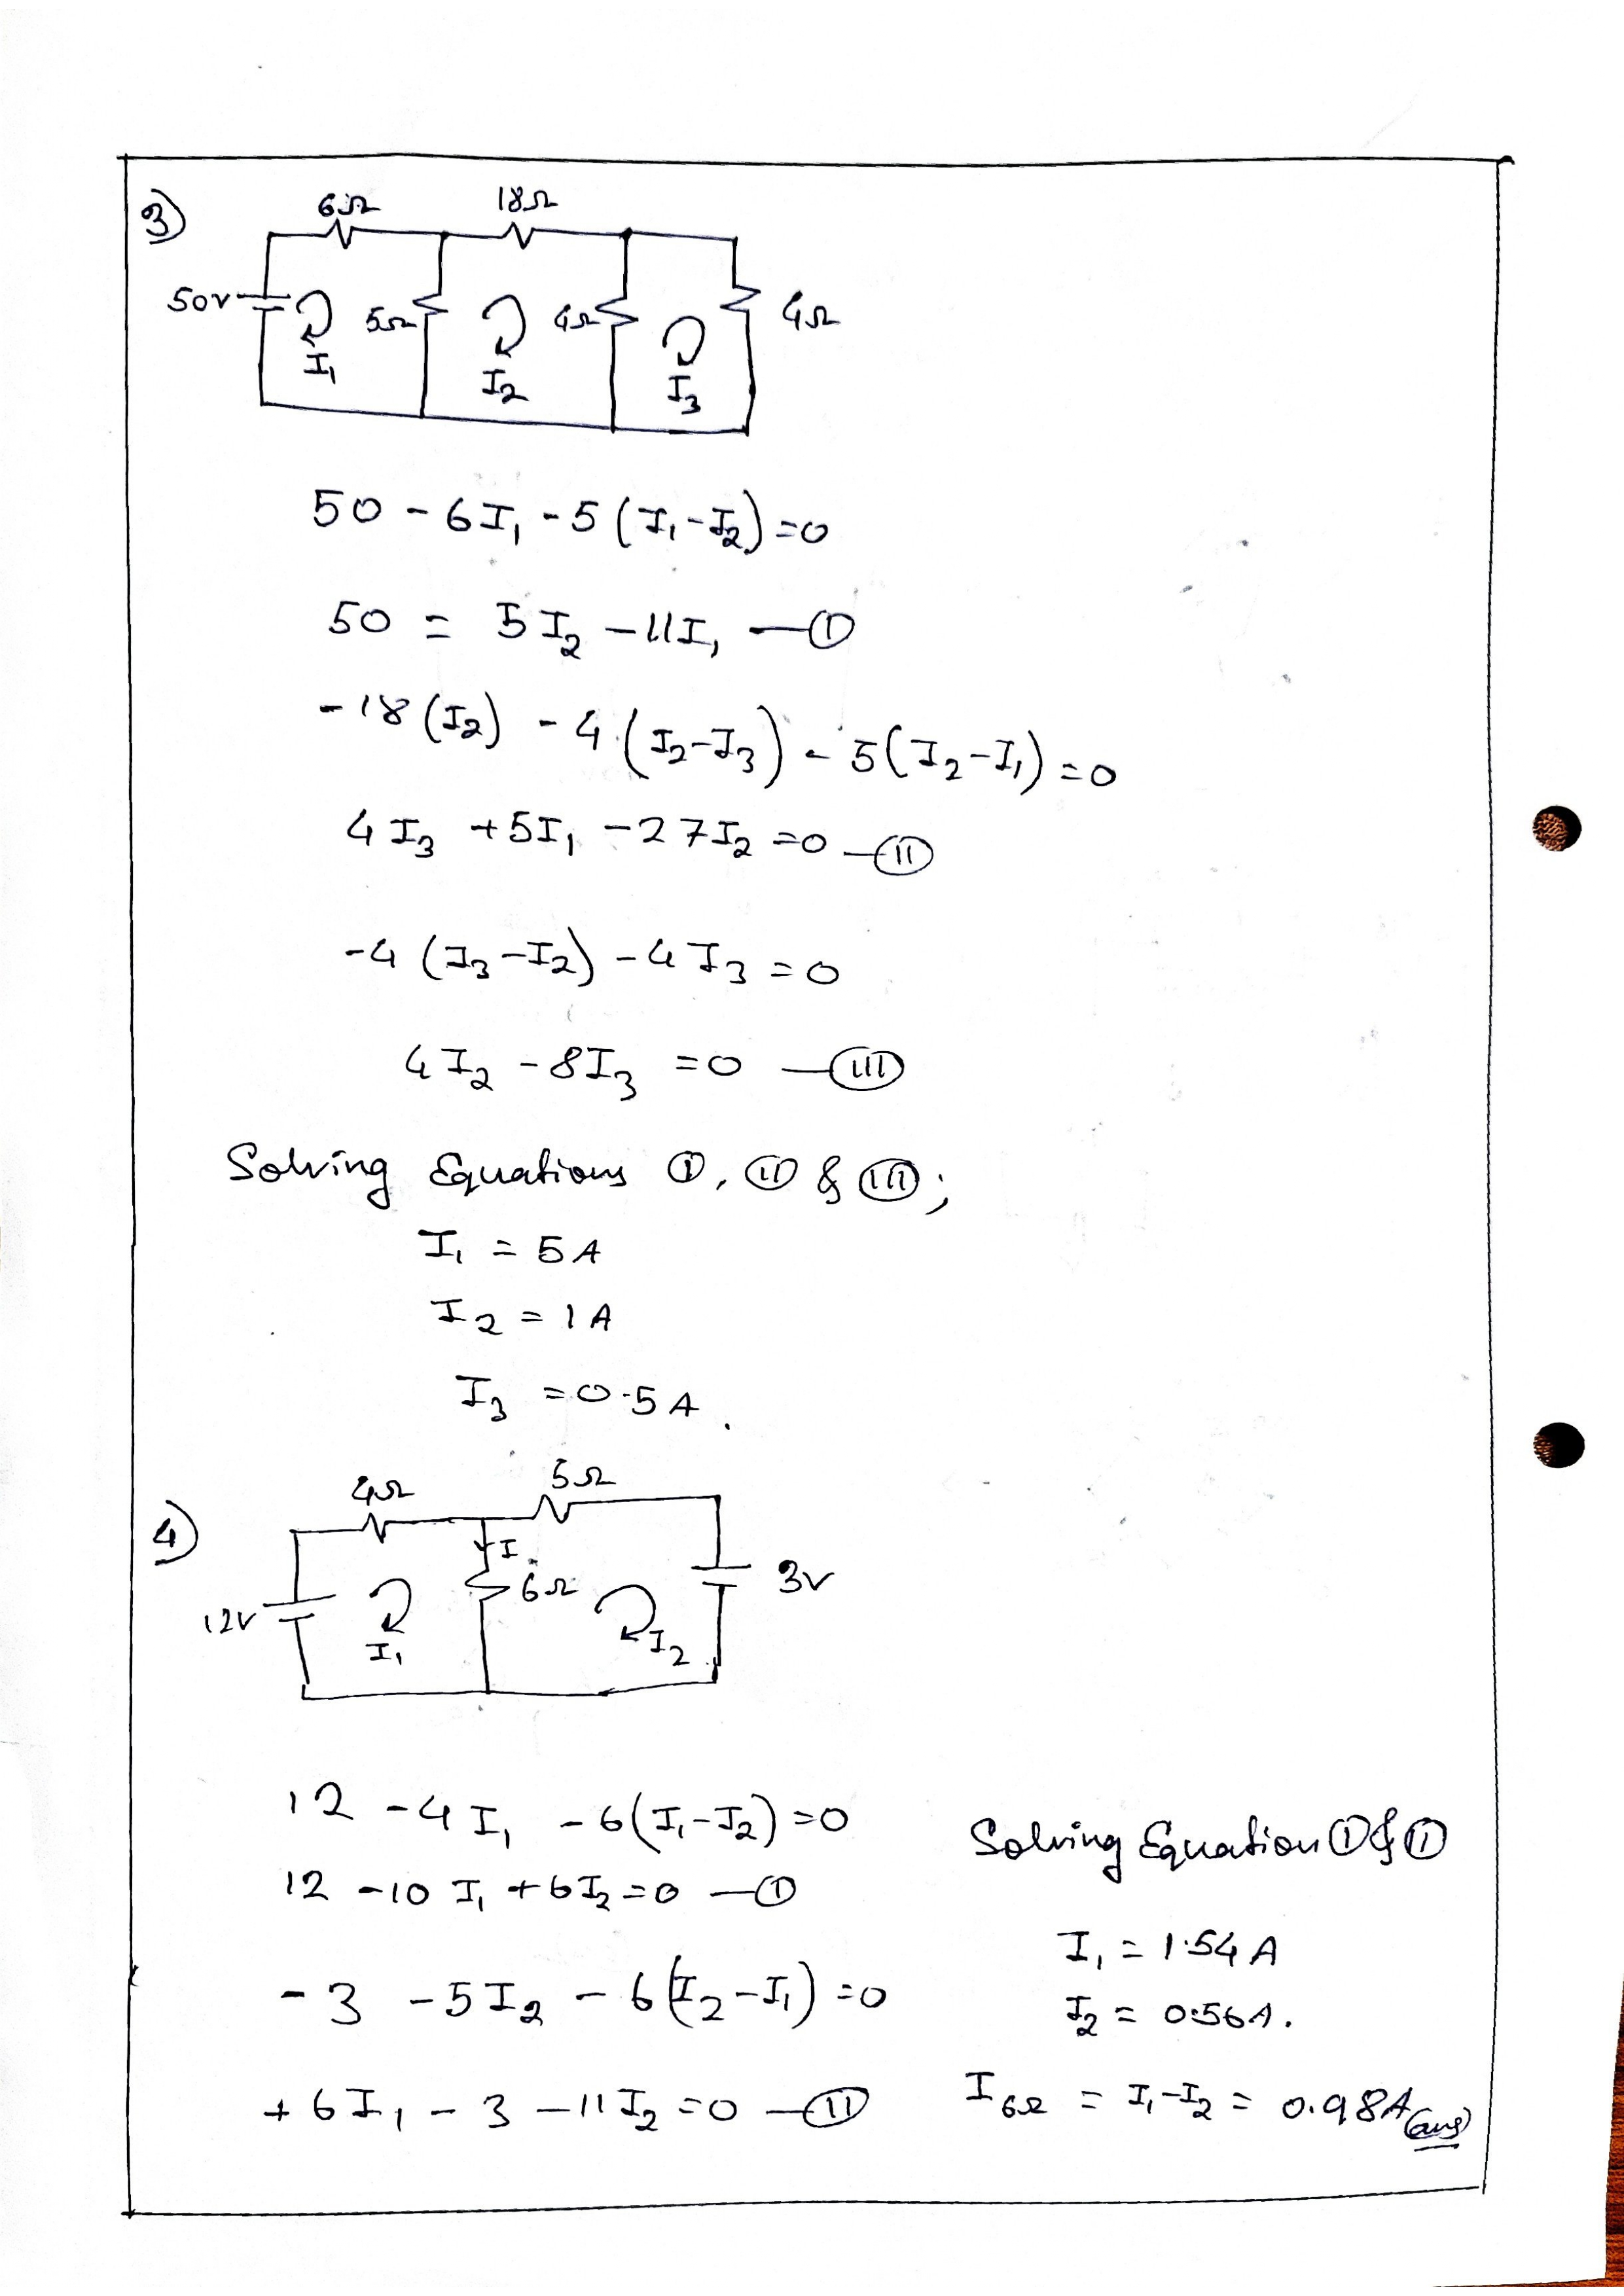 3)
6Ω 18Ω
50v 5Ω 4Ω 4Ω
I₁ I₂ I₃
50 - 6I₁ - 5(I₁-I₂)=0
50 = 5I₂ - 11I₁ — Ⓘ
-18(I₂) - 4(I₂-I₃) - 5(I₂-I₁)=0
4I₃ +5I₁ -27I₂ =0 — ⓘⓘ
-4(I₃-I₂) -4I₃ =0
4I₂ - 8I₃ =0 — (III)
Solving Equations (I), (II) & (III);
I₁ = 5A
I₂ = 1A
I₃ = 0.5A.
4)
4Ω 5Ω
I
12v 6Ω 3v
I₁ I₂
12 - 4I₁ - 6(I₁-I₂)=0
12 -10 I₁ +6I₂=0 — (I)
-3 -5I₂ - 6(I₂-I₁)=0
+6I₁ - 3 - 11I₂ =0 — (II)
Solving Equation (I) & (I)
I₁ = 1.54A
I₂ = 0.56A.
I6Ω = I₁-I₂ = 0.98A (ans)